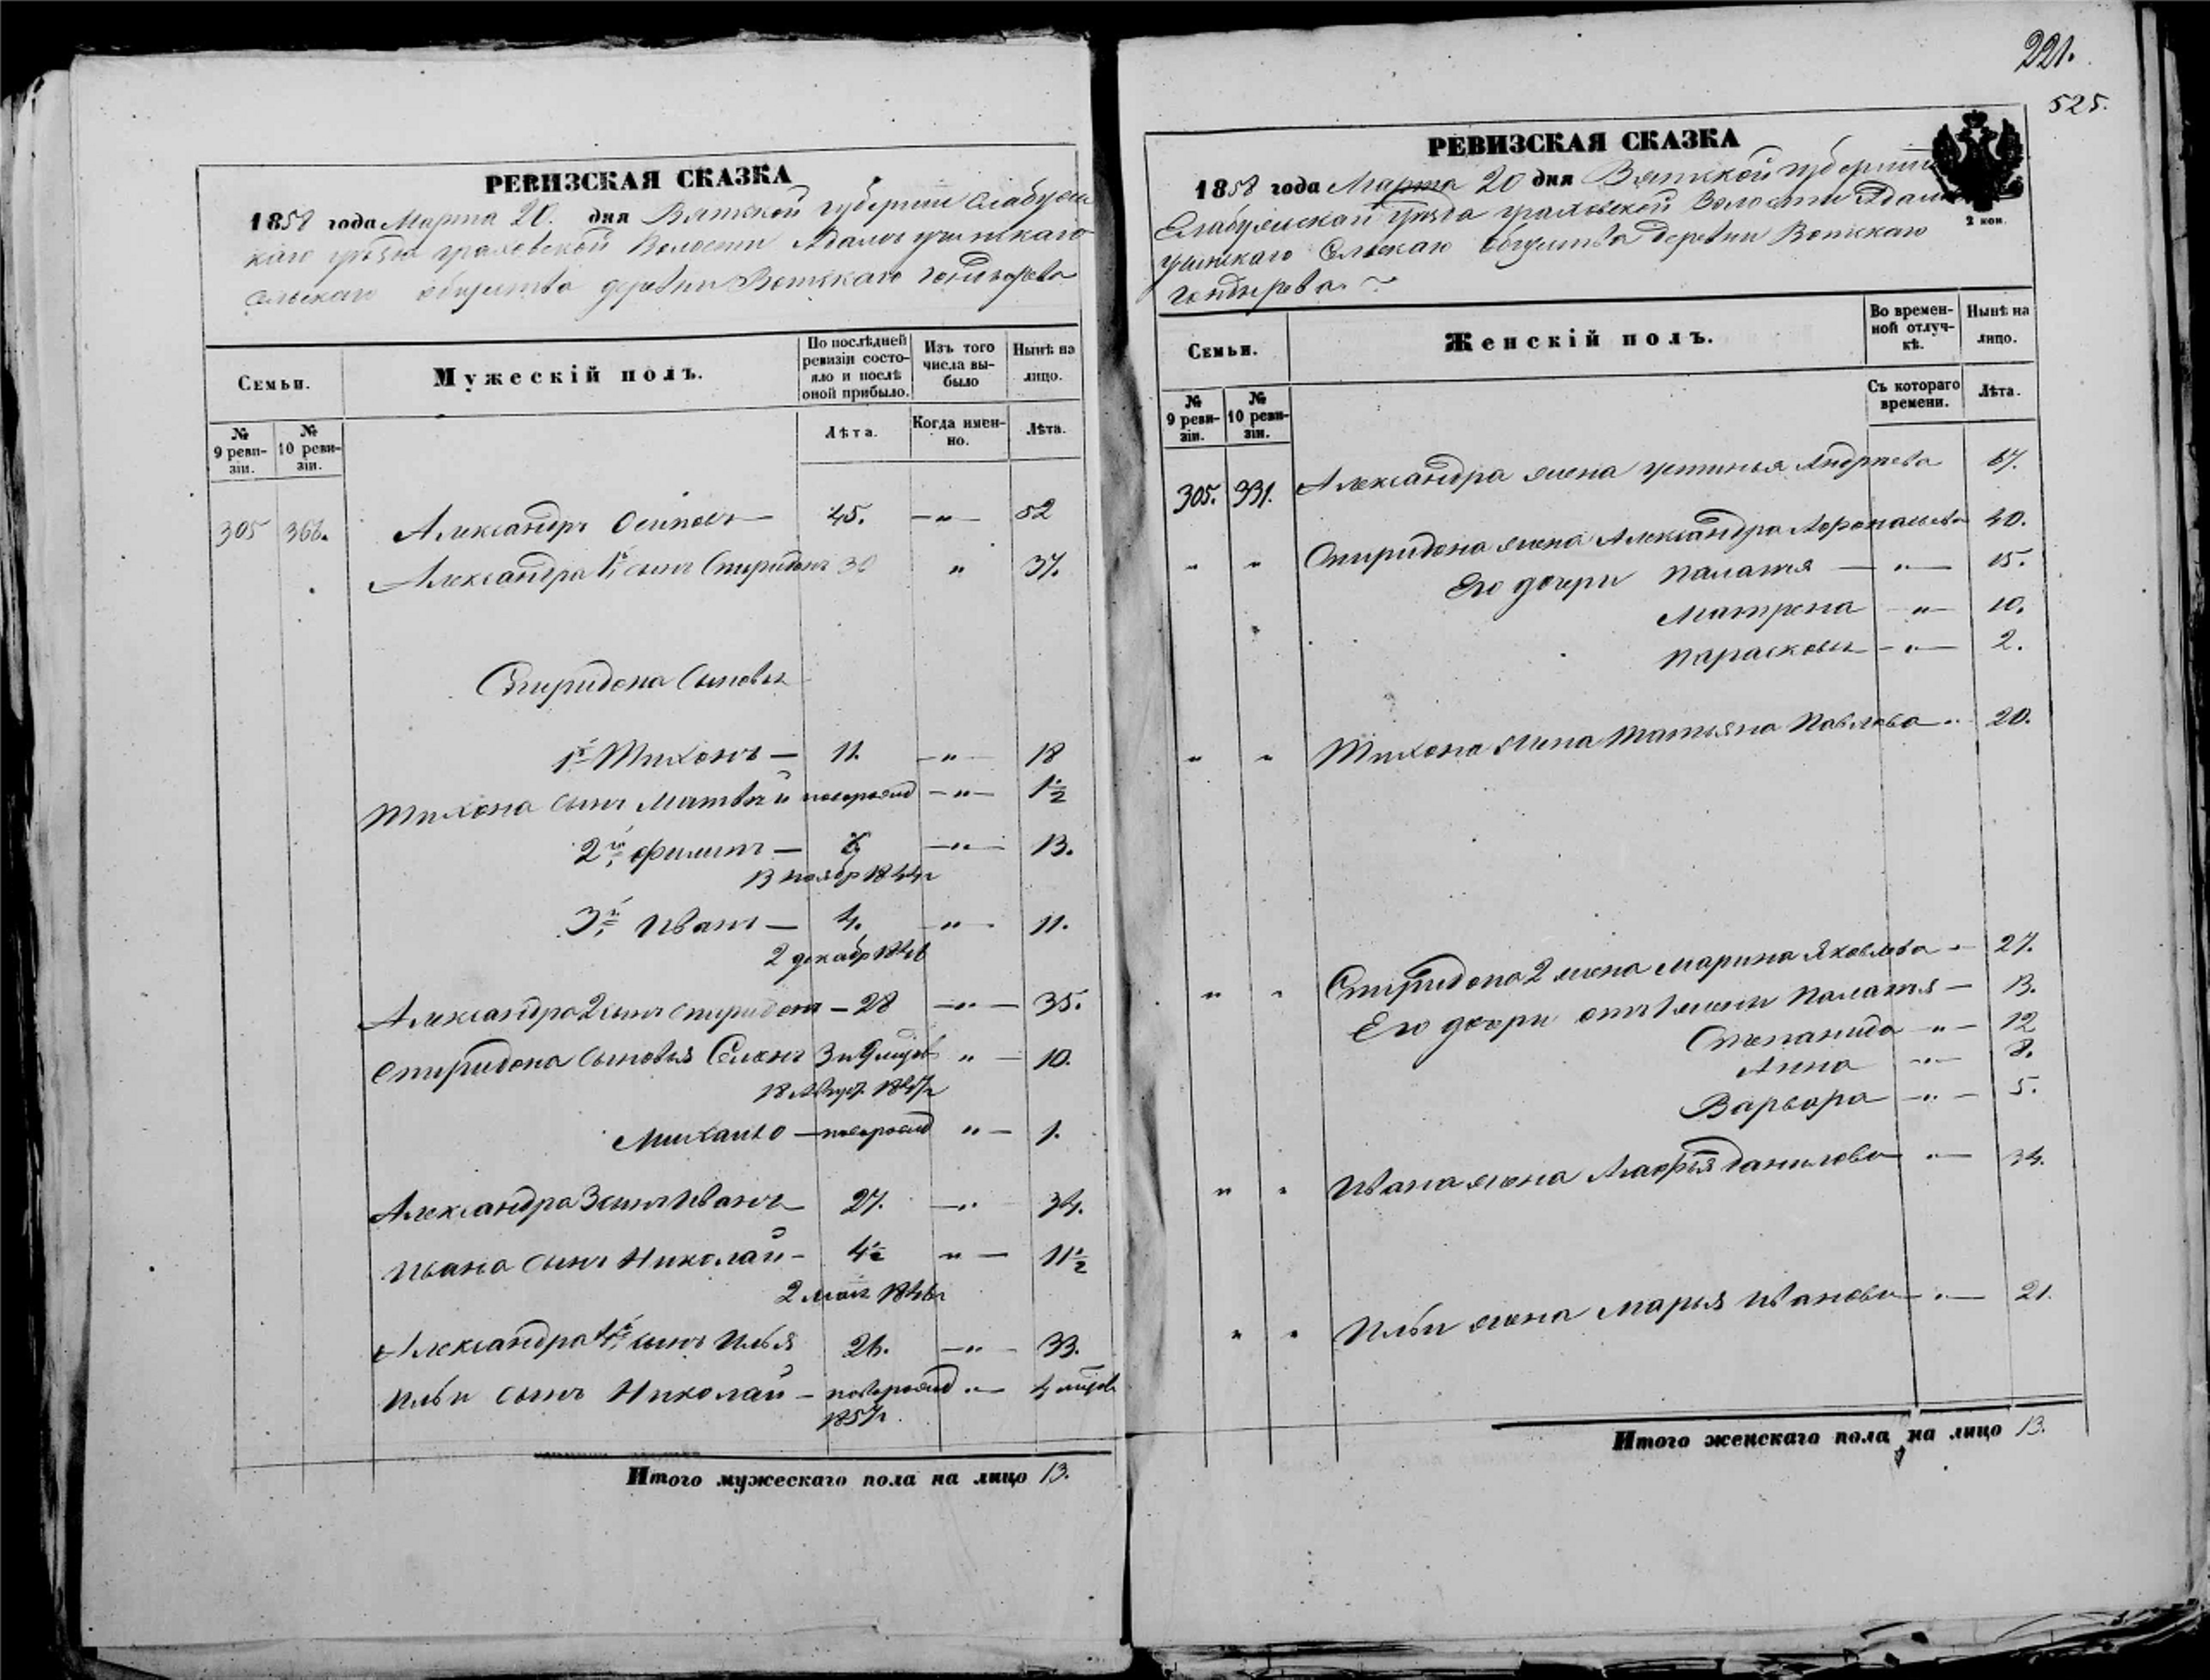 221.
525.
РЕВИЗСКАЯ СКАЗКА
1858 года Марта 20. дня Вятской губернии Елабужс
каго уѣзда граховской Волости Адамъ учинскаго
сельскаго общества деревни Вотскаго гондырева
Семьи.
Мужескій полъ.
По послѣдней ревизіи состояло и послѣ оной прибыло.
Изъ того числа выбыло
Нынѣ на лицо.
№ 9 ревизіи.
№ 10 ревизіи.
Лѣта.
Когда именно.
Лѣта.
305 Александръ Осиповъ — 45. — „ — 52
Александра 1й сынъ Спиридонъ 30 „ 37.
Спиридона Сыновья
1й Тихонъ — 11. — „ — 18
Тихона сынъ Матвѣй новорожд — „ — 1½
2й Филипъ — — „ — 13.
13 ноябр 1844г
3й Иванъ — 4. — „ — 11.
2 декабр 1846
Александра 2 сынъ спиридонъ — 28 — „ — 35.
Спиридона сыновья Семенъ 3 и 9 мѣсяц „ — 10.
18 Август 1847г
Михаило — новорожд „ — 1.
Александра 3 сынъ Иванъ 27. — „ 34.
Ивана сынъ Николай — 4½ „ — 11½
2 мая 1846г
Александра 4й сынъ Илья 26. — „ — 33.
Ильи сынъ Николай — новорожд „ — 4 мѣсяц
1857г.
Итого мужескаго пола на лицо 13.
РЕВИЗСКАЯ СКАЗКА
1858 года Марта 20 дня Вятской губерніи
Елабужской уѣзда граховской Волости Адамъ
2 коп.
учинскаго Сельскаго общества деревни Вотскаго
гондырева. ~
Семьи.
Женскій полъ.
Во временной отлучкѣ.
Нынѣ на лицо.
№ 9 ревизіи.
№ 10 ревизіи.
Съ котораго времени.
Лѣта.
305. 331. Александра жена устинья Андреева 67.
„ „ Спиридона жена Александра Афонасьева 40.
Его дочери Палагея — „ — 15.
Матрена — „ — 10.
Парасковья — „ — 2.
„ „ Тихона жена Татьяна Павлова „ 20.
„ „ Спиридона 2 жена Марина Яковлева „ — 27.
Его дочери отъ 1 жены Палагея — 13.
Степанида „ — 12
Анна — „ — 8.
Варвара — „ — 5.
„ „ Ивана жена Марфа Данилова „ — 34.
„ „ Ильи жена Марья Иванова — „ — 21.
Итого женскаго пола на лицо 13.